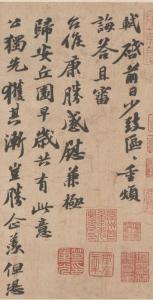 軾啓前日少致區區重煩
誨答且審
台候康勝感慰兼極
歸安丘園早歲共有此意
公獨先獲其漸豈勝企羨但恐